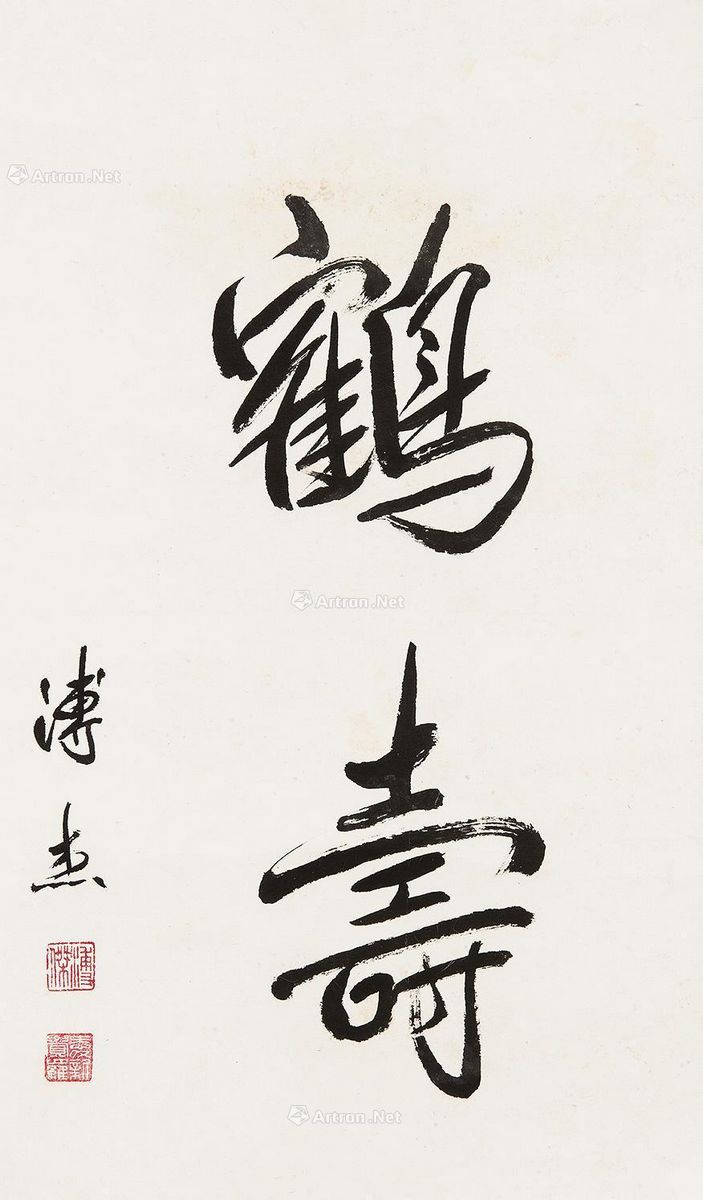 鶴壽
溥杰
溥傑
Artron.Net
Artron.Net
Artron.Net